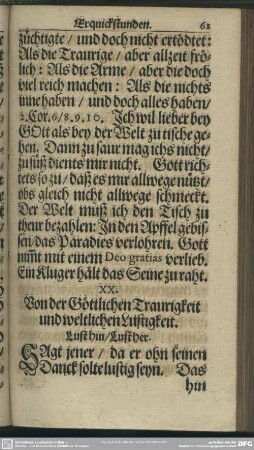 Erquickstunden. 61
züchtigte / und doch nicht ertödtet:
Als die Traurige / aber allzeit frö-
lich: Als die Arme / aber die doch
viel reich machen: Als die nichts
inne haben / und doch alles haben /
2. Cor. 6 / 8. 9. 10. Ich wil lieber bey
GOtt als bey der Welt zu tische ge-
hen. Dann zu saur mag ichs nicht /
zu süß dients mir nicht. Gott rich-
tets so zu / daß es mir allwege nützt /
obs gleich nicht allwege schmeckt.
Der Welt muß ich den Tisch zu
theur bezahlen: In den Apffel gebis-
sen / das Paradies verlohren. Gott
nimt mit einem Deo gratias verlieb.
Ein Kluger hält das Seine zu raht.
XX.
Von der Göttlichen Traurigkeit
und weltlichen Lustigkeit.
Lust hin / Lust her.
SAgt jener / da er ohn seinen
Danck solte lustig seyn. Das
hin